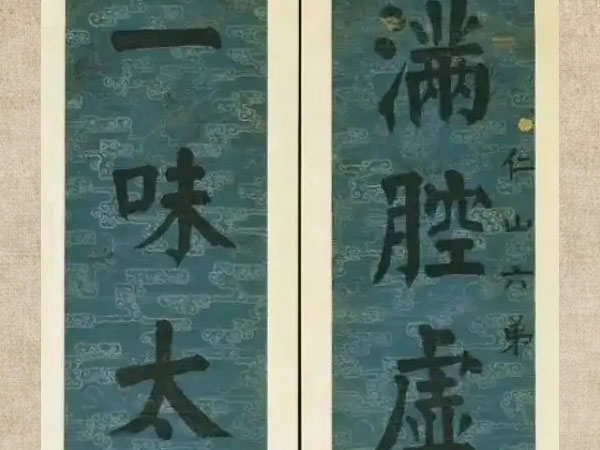 满腔虚
仁山六弟
一味太